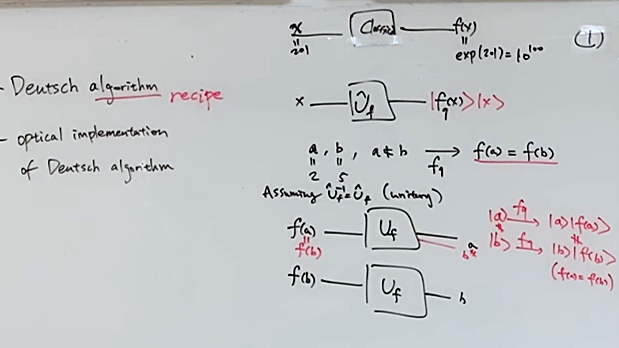 - Deutsch algorithm recipe
- optical implementation
of Deutsch algorithm
x Classic f(x)
(1)
= 201
= exp(201) = 10^100
x Û_f |f_q(x)>|x>
a, b, a ≠ b → f(a) = f(b)
= 2 = 5 f_q
Assuming Û_f^-1 = Û_f (unitary)
f(a) U_f a
= f(b) b
f(b) U_f b
|a> f_q → |a>|f(a)>
|b> f_q → |b>|f(b)>
(f(a) = f(b))